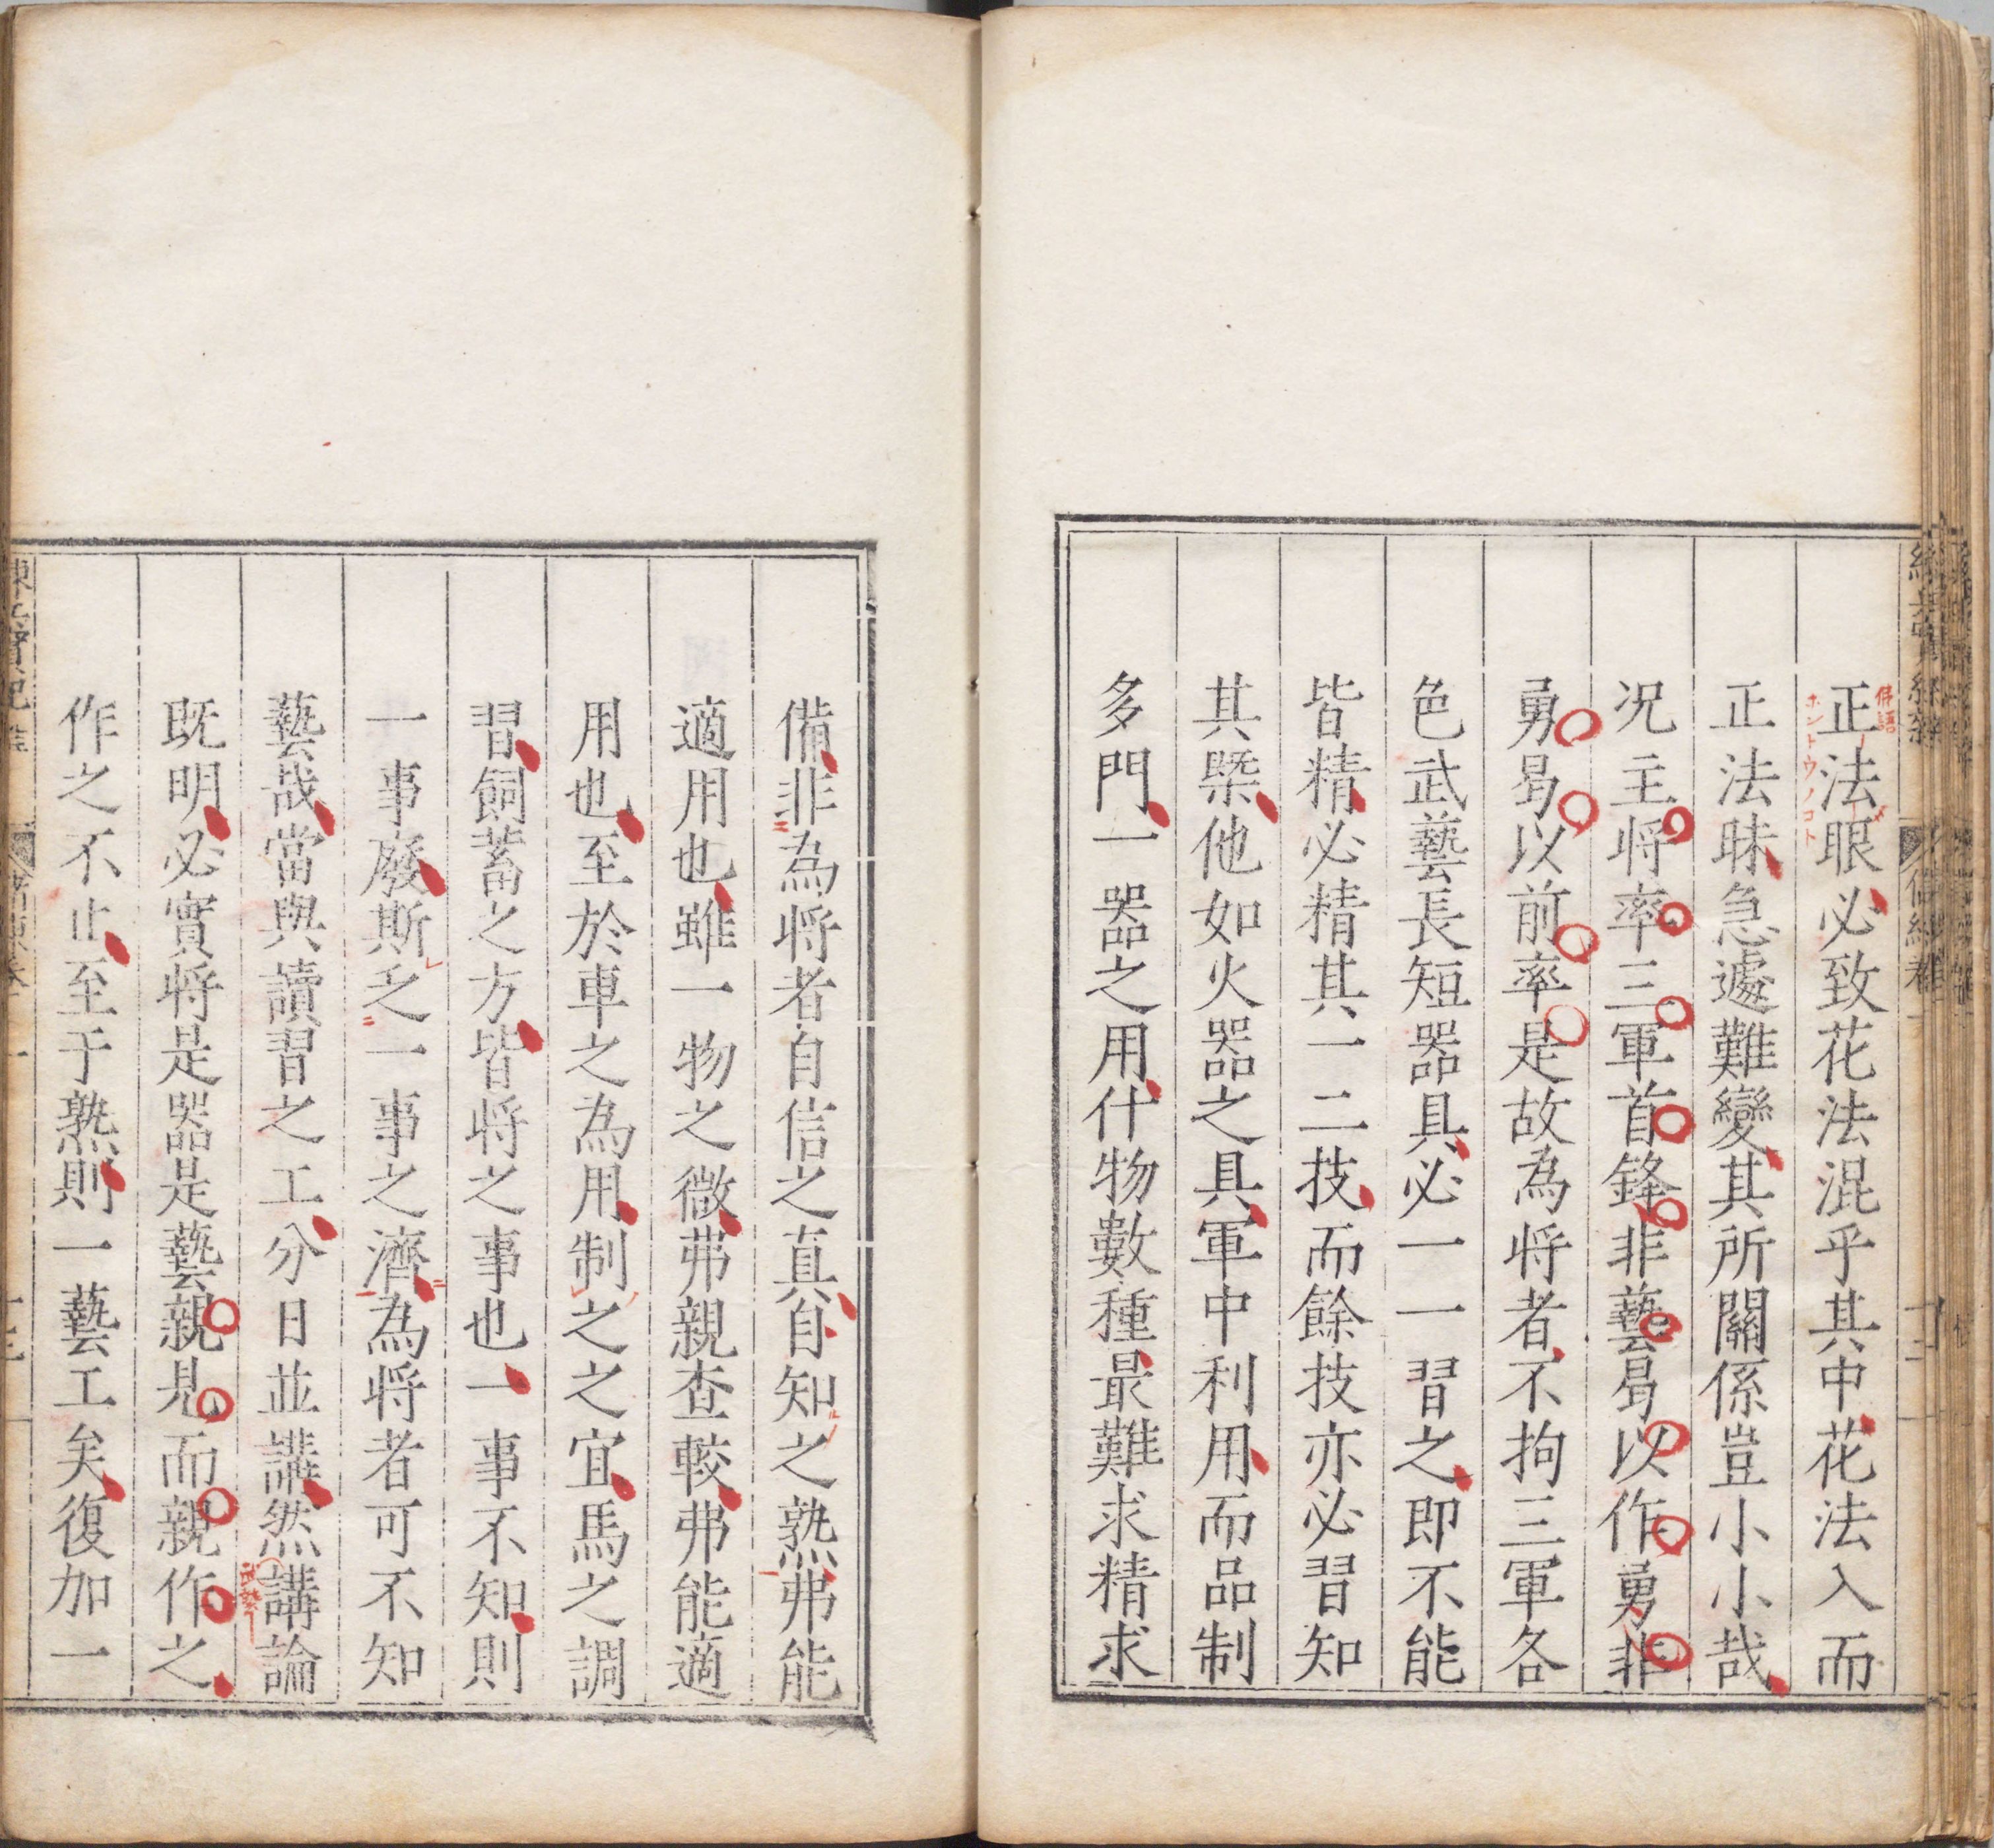 正法眼必致花法混乎其中花法入而
佛語
ホントウノコト
正法昧急遽難變其所關係豈小小哉
况主将率三軍首鋒非藝曷以作勇非
勇曷以前率是故為将者不拘三軍各
色武藝長短器具必一一習之即不能
皆精必精其一二技而餘技亦必習知
其槩他如火器之具軍中利用而品制
多門一器之用什物數種最難求精求
備非為将者自信之真自知之熟弗能
適用也雖一物之微弗親查較弗能適
用也至於車之為用制之之宜馬之調
習飼蓄之方皆将之事也一事不知則
一事廢斯之一事之濟為将者可不知
藝哉當與讀習之工分日並講然講論
武藝
既明必實将是器是藝親見而親作之
作之不止至于熟則一藝工矣復加一